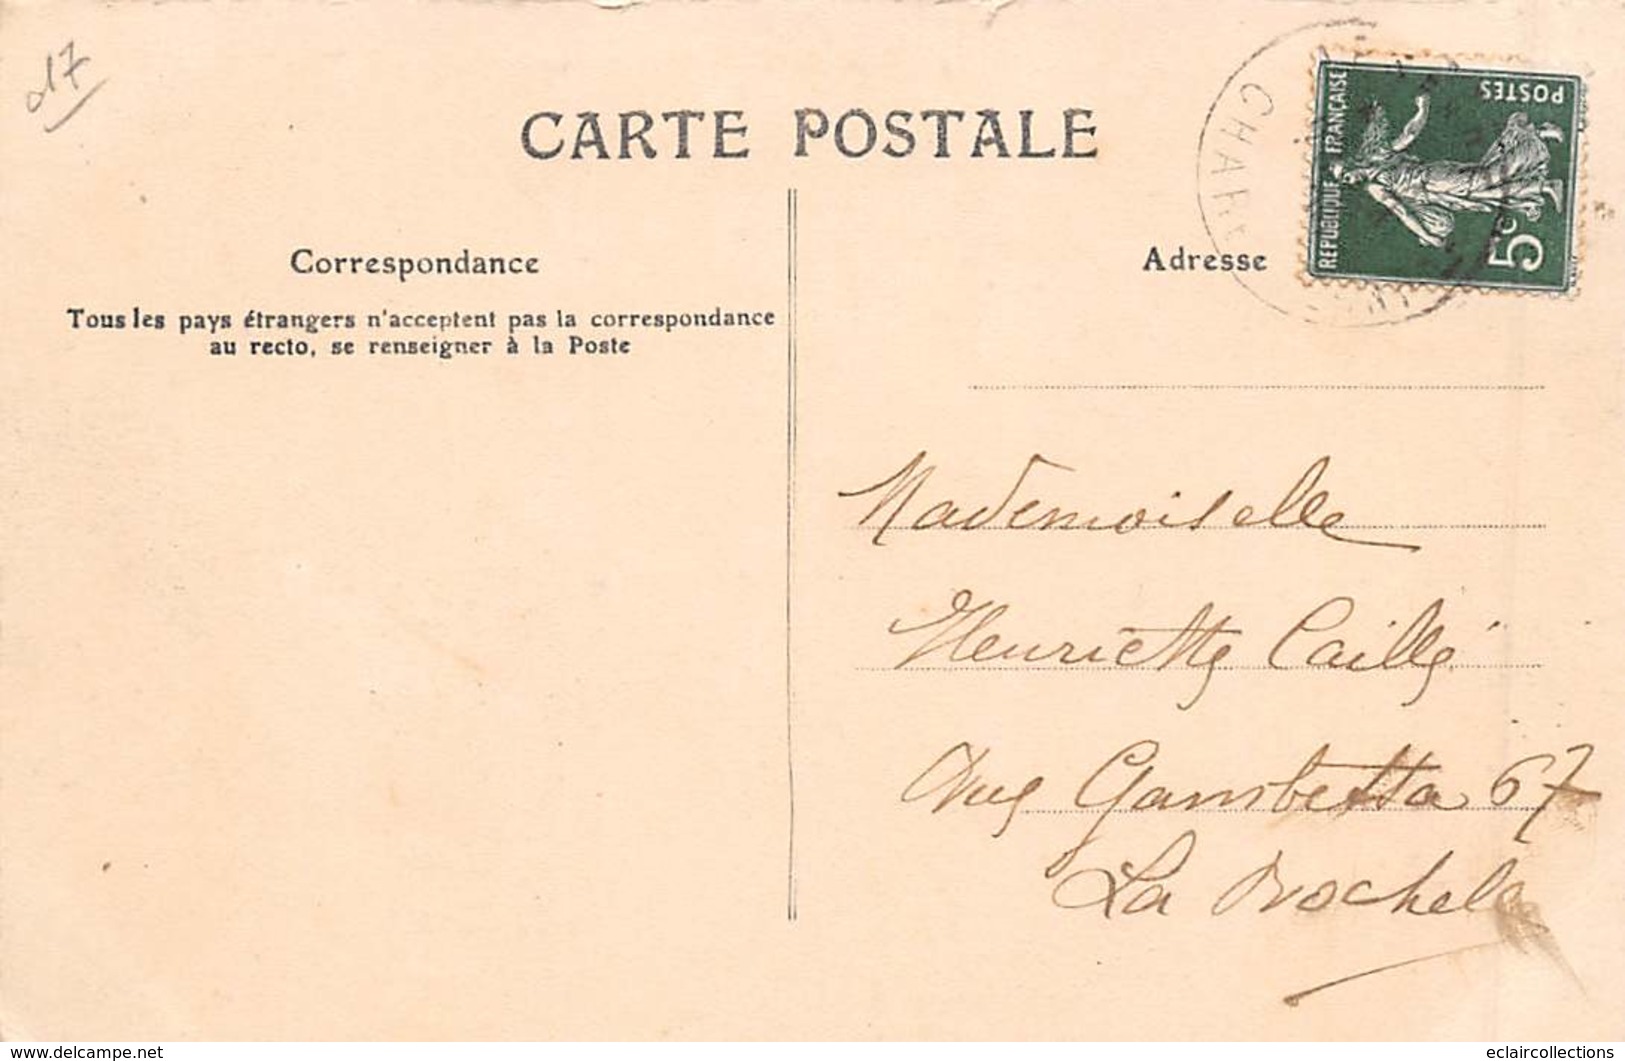 d17
CARTE POSTALE
Correspondance
Tous les pays étrangers n'acceptent pas la correspondance
au recto, se renseigner à la Poste
Adresse
REPUBLIQUE FRANÇAISE
POSTES
5c
CHAR
Mademoiselle
Henriette Caillé
Gambetta 67
La Rochelle
www.delcampe.net
eclaircollections